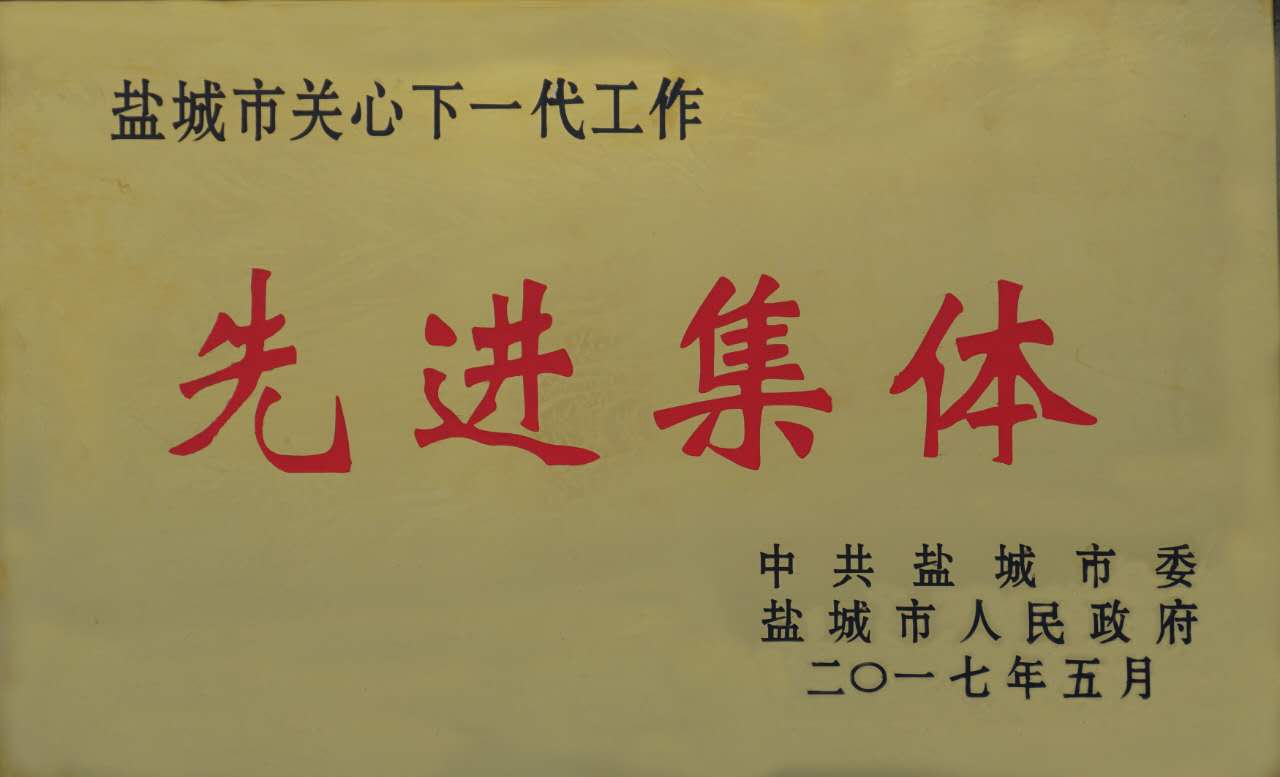 盐城市关心下一代工作
先进集体
中共盐城市委
盐城市人民政府
二〇一七年五月